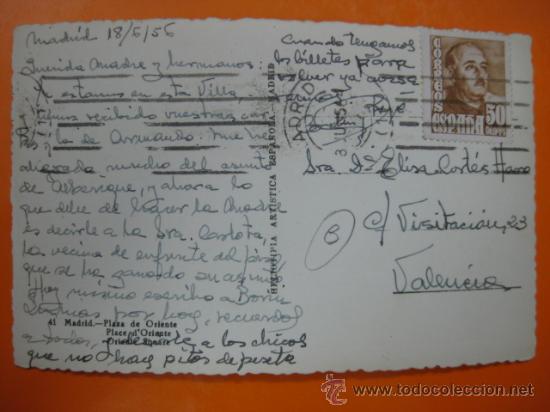 Madrid 18/6/56
Querida Madre y hermanos:
Ya estamos en esta Villa,
hemos recibido vuestras car
y la de Armando. Me he
alegrado mucho del asunto
de        , y ahora lo
que debe de hacer la Madre
es decirle a la Sra. Carlota,
la vecina de enfrente del piso
que se ha ganado su asunto
Hoy mismo escribo a
        por hoy, recuerdos
a todos,         a los chicos
que no hay pitos de peseta
Cuando tengamos
los billetes para
volver ya avisa
remos
Pepe
41 Madrid.—Plaza de Oriente
Place d'Oriente
Oriente Square
HELIOTIPIA ARTISTICA ESPAÑOLA. MADRID
CORREOS
ESPAÑA
50
CTS
MADRID
Sra. Dª Elisa Cortés
c/ Visitación, 23
Valencia
B
todocoleccion
www.todocoleccion.net